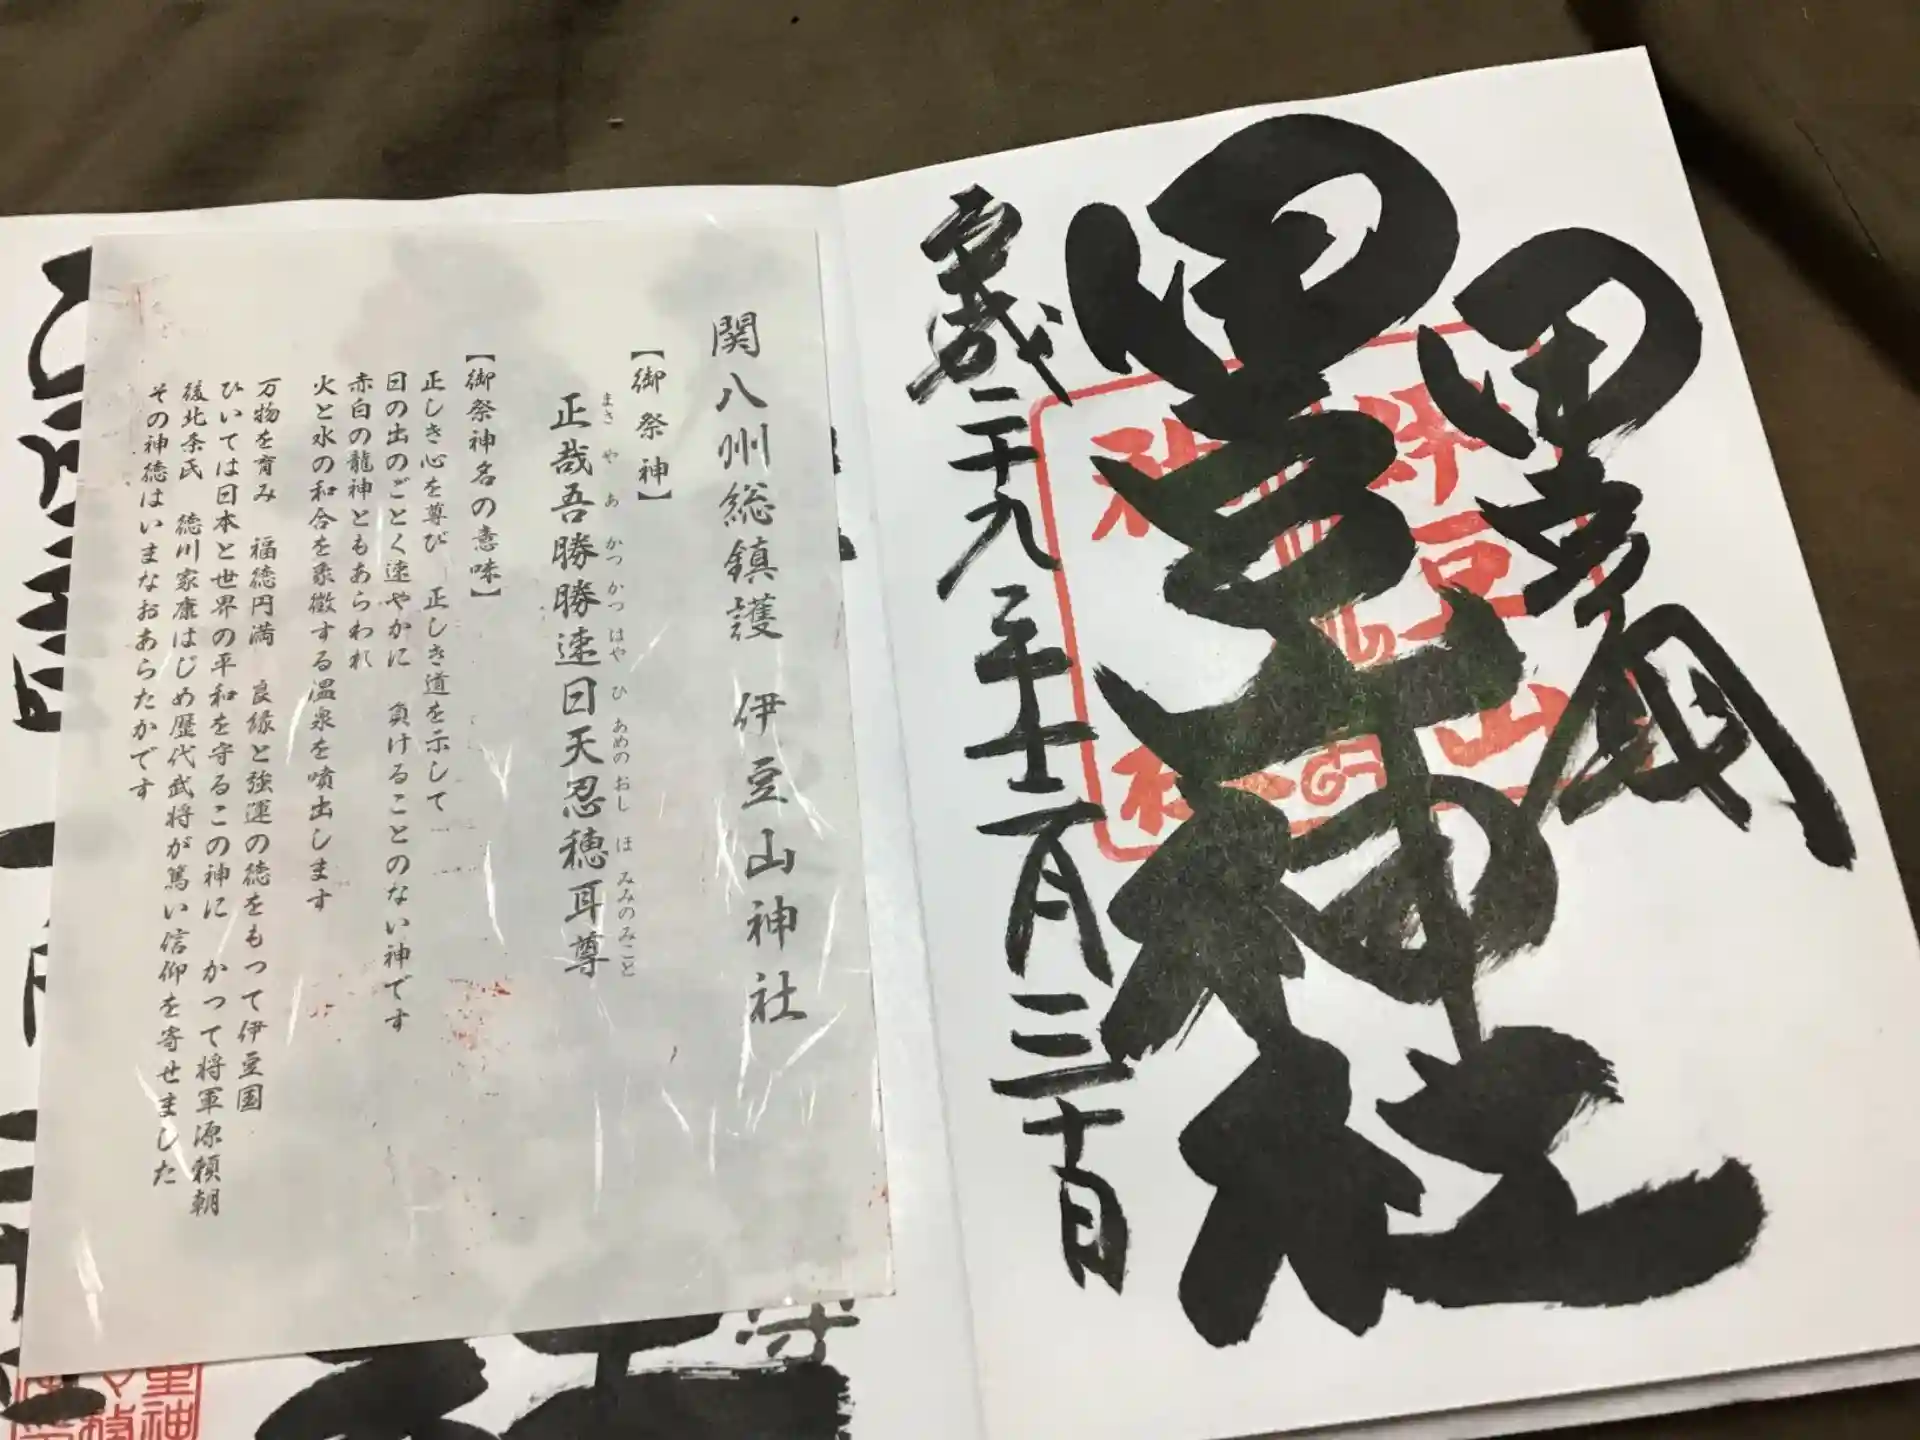 神社
伊豆山
神社
二十九年
三十日
関八州総鎮護　伊豆山神社
【御祭神】
まさ や あ かつ かつ はや ひ あめの おし ほ みみのみこと
正哉吾勝勝速日天忍穂耳尊
【御祭神名の意味】
正しき心を尊び　正しき道を示して
日の出のごとく速やかに　負けることのない神です
赤白の龍神ともあらわれ
火と水の和合を象徴する温泉を噴出します
万物を育み　福徳円満　良縁と強運の徳をもって伊豆国
ひいては日本と世界の平和を守るこの神に　かつて将軍源頼朝
後北条氏　徳川家康はじめ歴代武将が篤い信仰を寄せました
その神徳はいまなおあらたかです
守